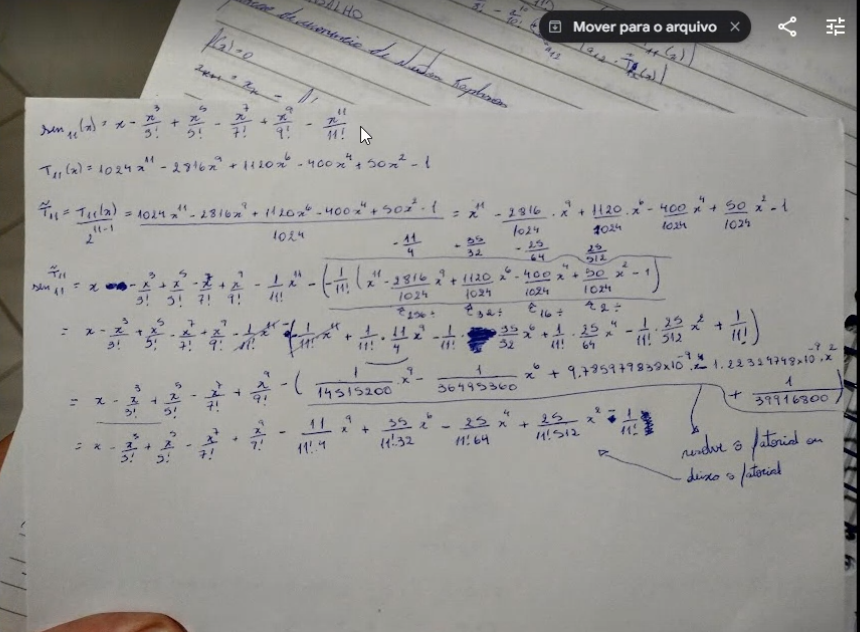 Mover para o arquivo
f(x)=0
sen₁₁(x) = x - x³/3! + x⁵/5! - x⁷/7! + x⁹/9! - x¹¹/11!
T₁₁(x) = 1024x¹¹ - 2816x⁹ + 1120x⁶ - 400x⁴ + 50x² - 1
T̃₁₁ = T₁₁(x)/2¹¹⁻¹ = (1024x¹¹ - 2816x⁹ + 1120x⁶ - 400x⁴ + 50x² - 1)/1024 = x¹¹ - 2816/1024 · x⁹ + 1120/1024 · x⁶ - 400/1024 x⁴ + 50/1024 x² - 1
- 11/4 + 35/32 - 25/64 25/512
sen₁₁ T̃₁₁ = x - x³/3! + x⁵/5! - x⁷/7! + x⁹/9! - 1/11! x¹¹ - (-1/11! (x¹¹ - 2816/1024 x⁹ + 1120/1024 x⁶ - 400/1024 x⁴ + 50/1024 x² - 1))
256÷ 32÷ 16÷ 2÷
= x - x³/3! + x⁵/5! - x⁷/7! + x⁹/9! - 1/11! x¹¹ - (-1/11! x¹¹ + 1/11! · 11/4 x⁹ - 1/11! · 35/32 x⁶ + 1/11! · 25/64 x⁴ - 1/11! · 25/512 x² + 1/11!)
= x - x³/3! + x⁵/5! - x⁷/7! + x⁹/9! - (1/14515200 · x⁹ - 1/36495360 x⁶ + 9.785979838×10⁻⁹ · x⁴ - 1.22324748×10⁻⁹ · x² + 1/39916800)
= x - x³/3! + x⁵/5! - x⁷/7! + x⁹/9! - 11/11!·4 x⁹ + 35/11!·32 x⁶ - 25/11!·64 x⁴ + 25/11!·512 x² - 1/11!
resolve o fatorial ou
deixo o fatorial